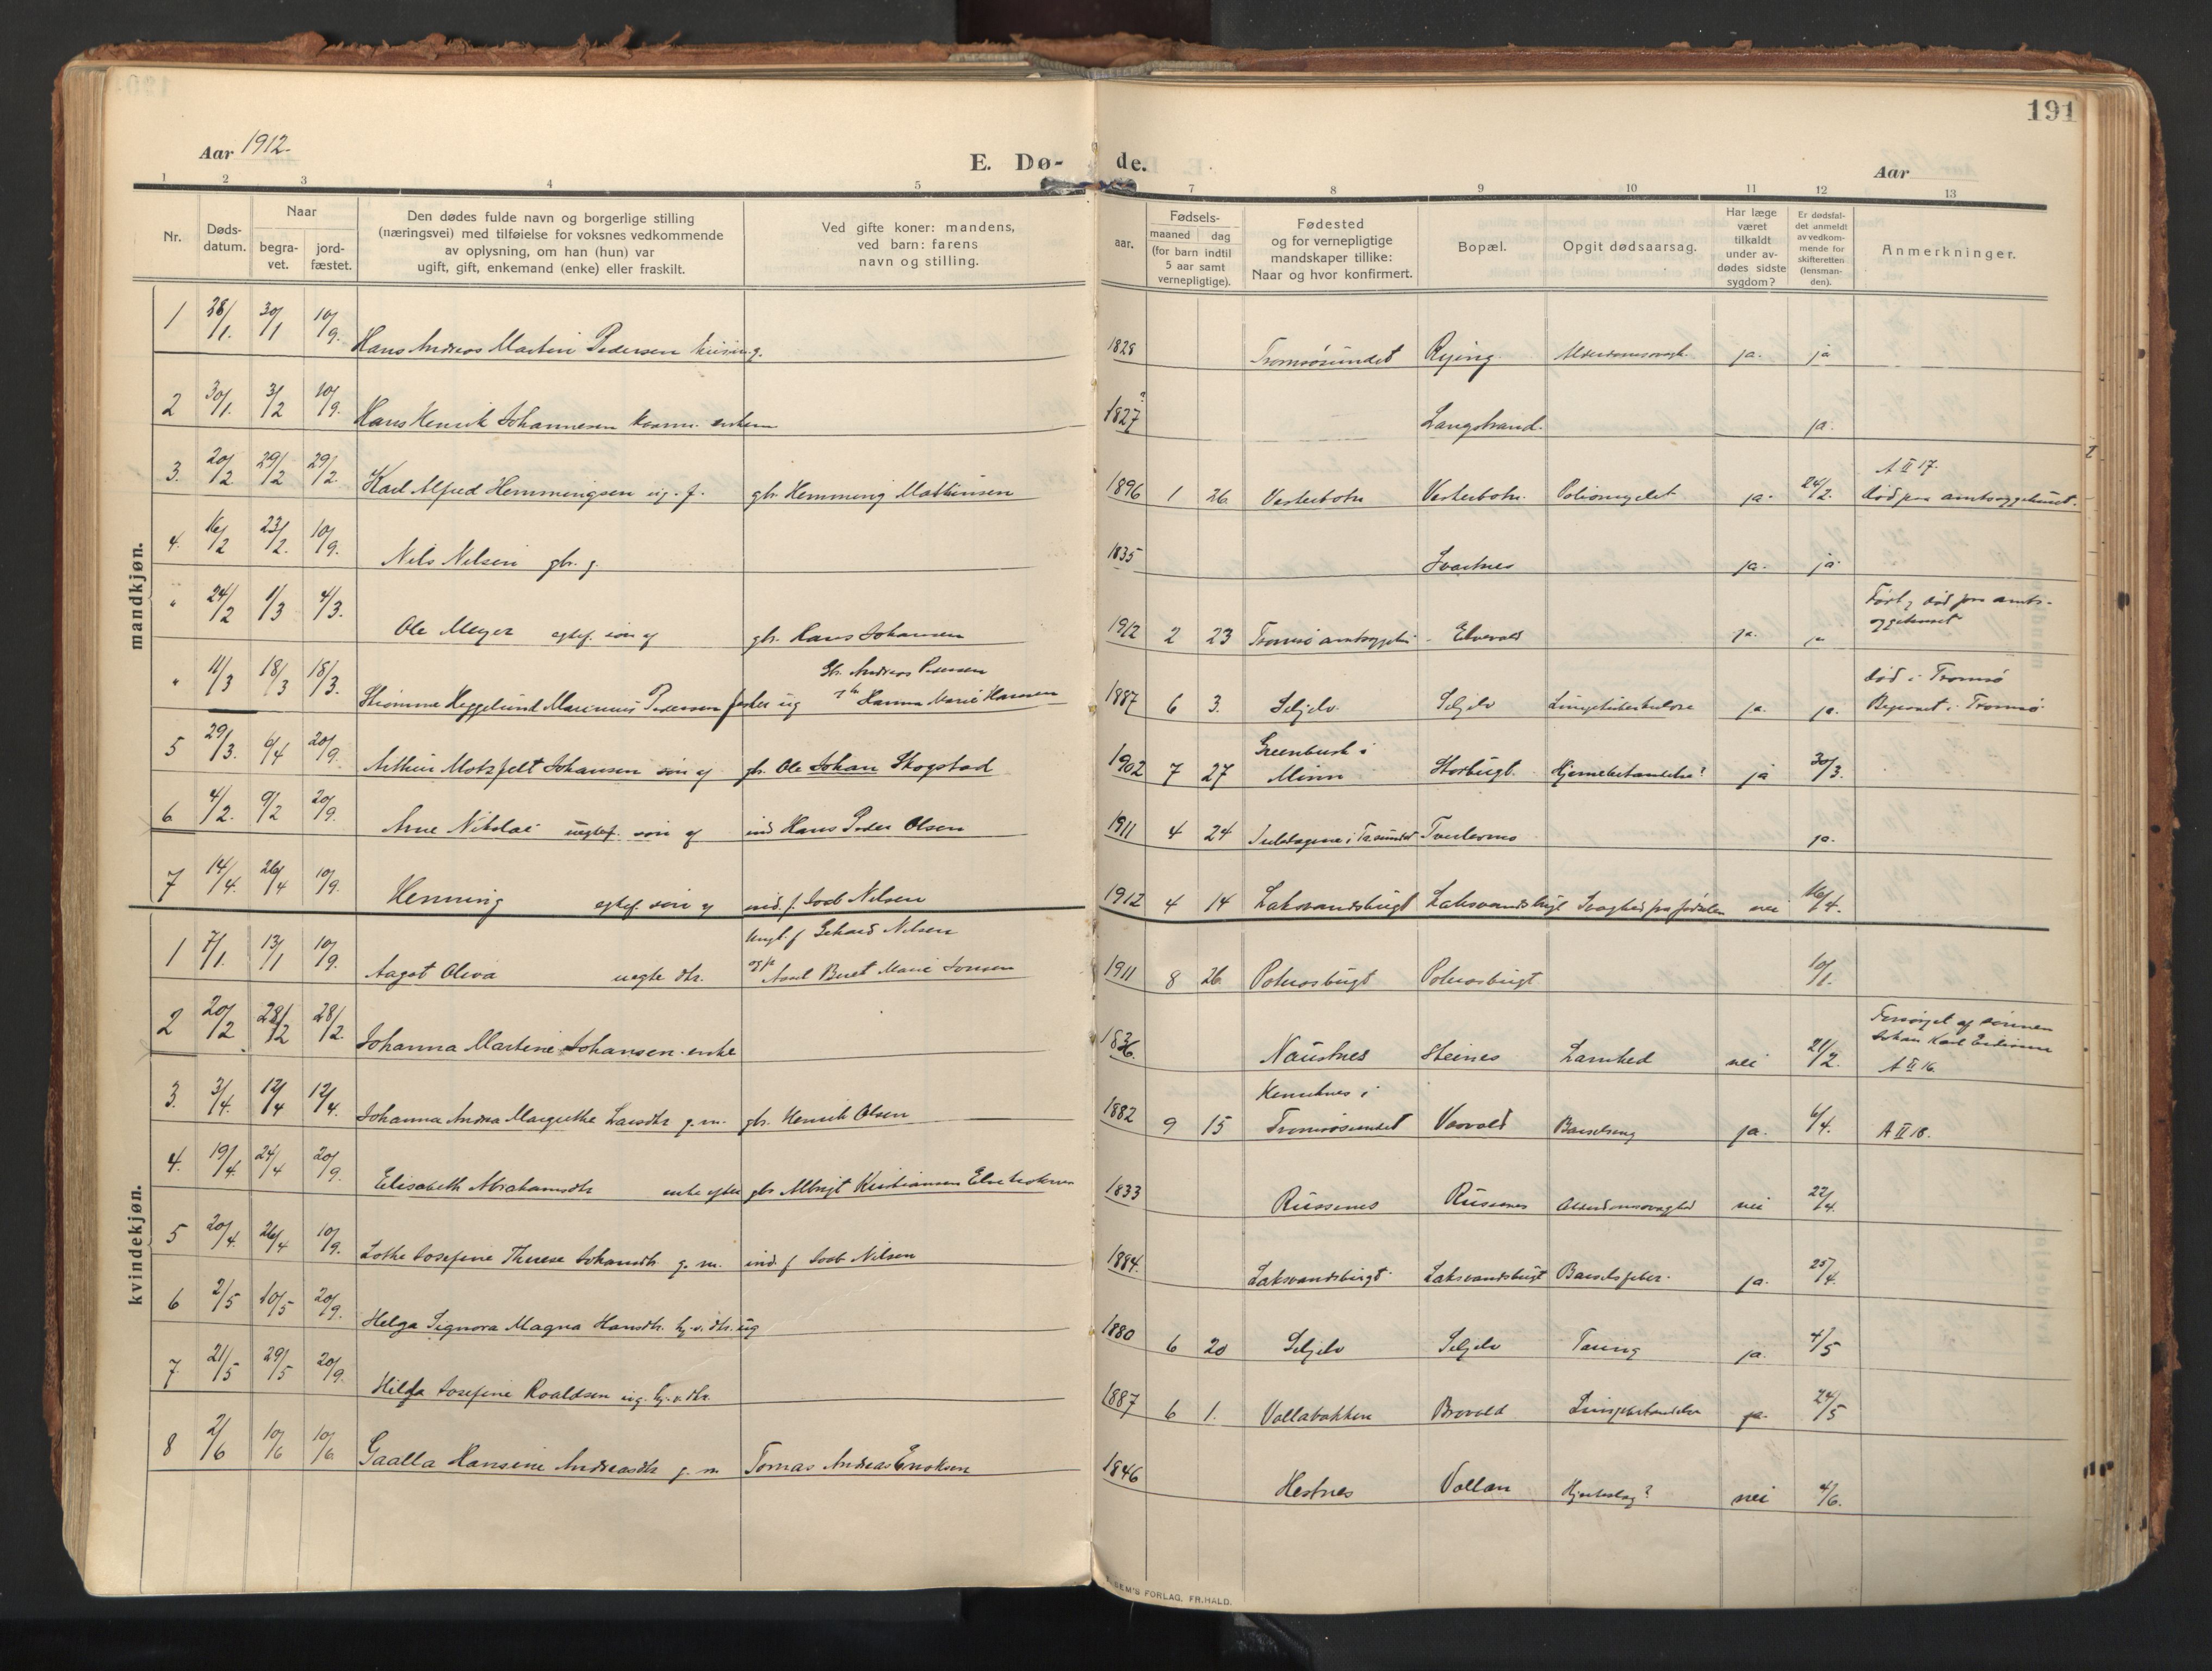 191
Aar 1912.
E. Dø- de.
Aar
1 2 3 4 5 7 8 9 10 11 12 13
Nr.
Døds-
datum.
Naar
begra-
vet.
jord-
fæstet.
Den dødes fulde navn og borgerlige stilling
(næringsvei) med tilføielse for voksnes vedkommende
av oplysning, om han (hun) var
ugift, gift, enkemand (enke) eller fraskilt.
Ved gifte koner: mandens,
ved barn: farens
navn og stilling.
aar.
Fødsels-
maaned dag
(for barn indtil
5 aar samt
vernepligtige).
Fødested
og for vernepligtige
mandskaper tillike:
Naar og hvor konfirmert.
Bopæl.
Opgit dødsaarsag.
Har læge
været
tilkaldt
under av-
dødes sidste
sygdom?
Er dødsfal-
det anmeldt
av vedkom-
mende for
skifteretten
(lensman-
den).
Anmerkninger.
mandkjøn.
1 28/1. 30/1 10/9. Hans Andreas Martin Pedersen 1828 Tromsøsundet Ryeng. ja. ja
2 30/1. 3/2 10/9. Hans Henrik Johannesen 1827? Langstrand. ja.
3. 20/2 29/2 29/2. Karl Alfred Hemmingsen ug. f. gbr. Hemming Mathinsen 1896 1 26. Vesterbotn Vesterbotn. Poliomyelit ja. 24/2. A II 17.
død paa amtssygehuset.
4. 16/2 23/2. 10/9. Nils Nilsen gbr. g. 1835 Svartnes ja. ja.
" 24/2 1/3 4/3. Ole Meyer egtef. søn af gbr. Hans Johansen 1912 2 23 Tromsø amtssygeh. Elvevold ja. ja Født og død paa amts-
sygehuset
" 11/3 18/3 18/3. Heggelund Marinius Pedersen fisker ug Gbr. Andreas Pedersen
Hanna Marie Hansen 1887 6 3. Seljelv. Seljelv Lungetuberkulose ja. ja. død i Tromsø
Begravet i Tromsø.
5 29/3. 6/4 20/9. Arthur Motzfelt Johansen søn af gbr. Ole Johan Skogstad 1902 7 27 Greenbush i
Minn Storbugt. Hjernebetændelse? ja 30/3.
6 4/2. 9/2 20/9. Arne Nikolai uegtef. søn af ind Hans Peder Olsen 1911 4 24 ja.
7 14/4. 26/4 10/9. Henning egtef. søn af ind. f. Joab Nilsen 1912 4 14 Laksvandsbugt Laksvandsbugt Svaghed fra fødselen nei 16/4.
kvindekjøn.
1 7/1. 13/1 10/9. Aagot Oliva uegte dtr. Ungk. f Gehard Nilsen
og p. Beret Marie Jonsen 1911 8 26. Polnosbugt Polnosbugt. 10/1.
2 20/2 28/2 28/2. Johanna Martine Johansen. enke 1836. Naustnes Steines Lamhed nei 21/2. Forsørget af sønnen
Johan Karl
A II 16.
3. 3/4. 12/4 12/4. Johanna Andrea Margrethe Larsdtr g. m. gbr. Henrik Olsen 1882 9 15 i
Tromsøsundet ja. 6/4. A II 18.
4. 19/4. 24/4 20/9. Elisabeth Abrahamsdtr enke efter gbr Albrigt Kristiansen 1833 Russenes Russenes Alderdomssvaghed nei 22/4.
5 20/4. 26/4 10/9. Lotte Josefine Therese Johansdtr g. m. ind. f Joab Nilsen 1884. Laksvandsbugt. Laksvandsbugt Barselsfeber. ja. 25/4.
6 2/5 10/5 20/9. Helga Signora Magna Hansdtr. hj. v. dtr. ug 1880 6 20 Seljelv Seljelv Tæring ja. 4/5
7 21/5 29/5 20/9. Hilda Josefine Roaldsen ug. hj. v. dtr. 1887 6 1. Vollabakken Brevold Lungebetændelse ja. 24/5
8 2/6 10/6 10/6 Gaalla Hansine Andreasdtr g. m Tomas Andreas Enoksen 1846 Hestnes Vollan Hjerteslag? nei 4/6.
SEM'S FORLAG, FR.HALD.